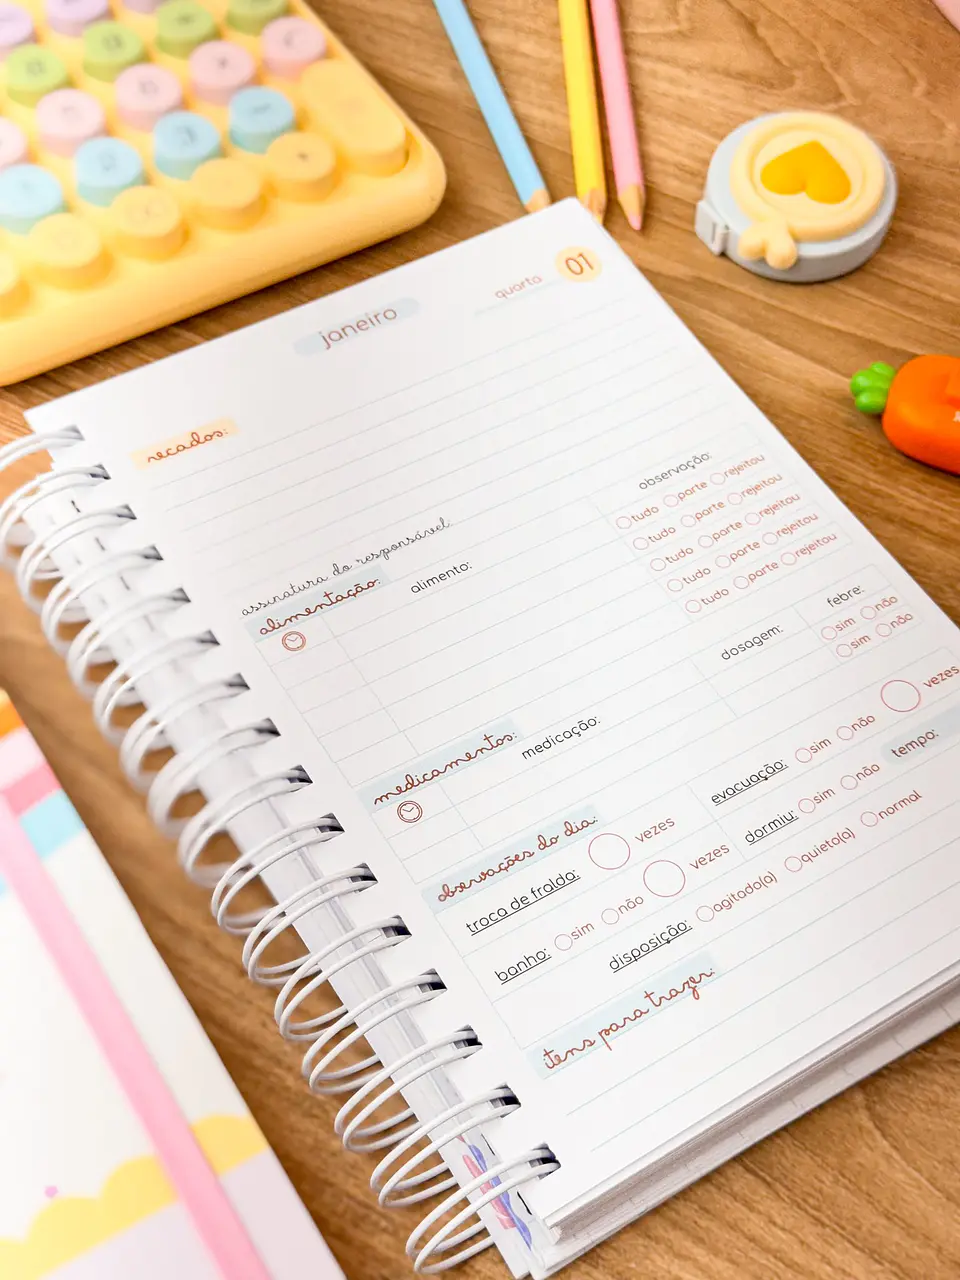 janeiro
quarta 01
recados:
assinatura do responsável:
alimentação:
alimento:
observação:
tudo parte rejeitou
tudo parte rejeitou
tudo parte rejeitou
tudo parte rejeitou
tudo parte rejeitou
medicamentos:
medicação:
dosagem:
febre:
sim não
sim não
observações do dia:
troca de fralda: vezes
evacuação: sim não vezes
banho: sim não vezes
dormiu: sim não tempo:
disposição: agitado(a) quieto(a) normal
itens para trazer: